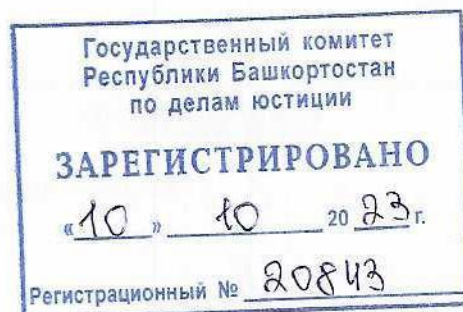 Государственный комитет
Республики Башкортостан
по делам юстиции
ЗАРЕГИСТРИРОВАНО
«10» 10 2023 г.
Регистрационный № 20843